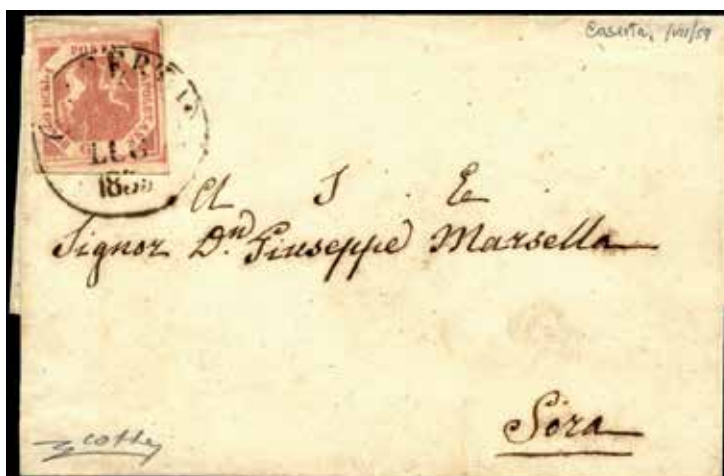 Caserta, /VII/59
LUG
185
A S E
Signor D.n Giuseppe Marsella
Sora